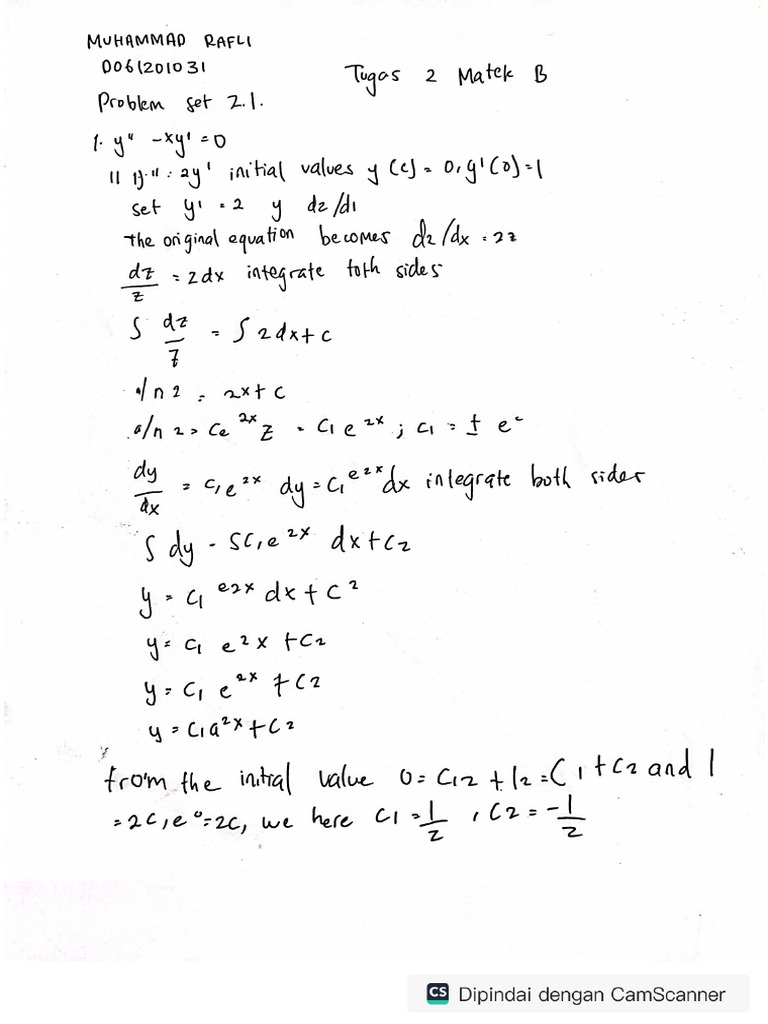 MUHAMMAD RAFLI
0061201031
Tugas 2 Matek B
Problem set 2.1.
1. y" - xy' = 0
y" = 2y' initial values y (c) = 0, y'(0) = 1
set y' = 2 y dz/d1
the original equation becomes dz/dx = 2z
dz/z = 2dx integrate toth sides
∫ dz/z = ∫ 2dx + c
ln 2 = 2x + c
ln 2 = Ce^2x z = C1 e^2x ; C1 = ± e^c
dy/dx = C1e^2x dy = C1^e2x dx integrate both sider
∫ dy - SC1e^2x dx + C2
y = C1 e2x dx + C^2
y = C1 e^2 x + C2
y = C1 e^2x + C2
y = C1a^2x + C2
from the initial value 0 = C12 + 12 = C1 + C2 and 1
= 2C, e^0 = 2C, we here C1 = 1/2 , C2 = -1/2
CS Dipindai dengan CamScanner